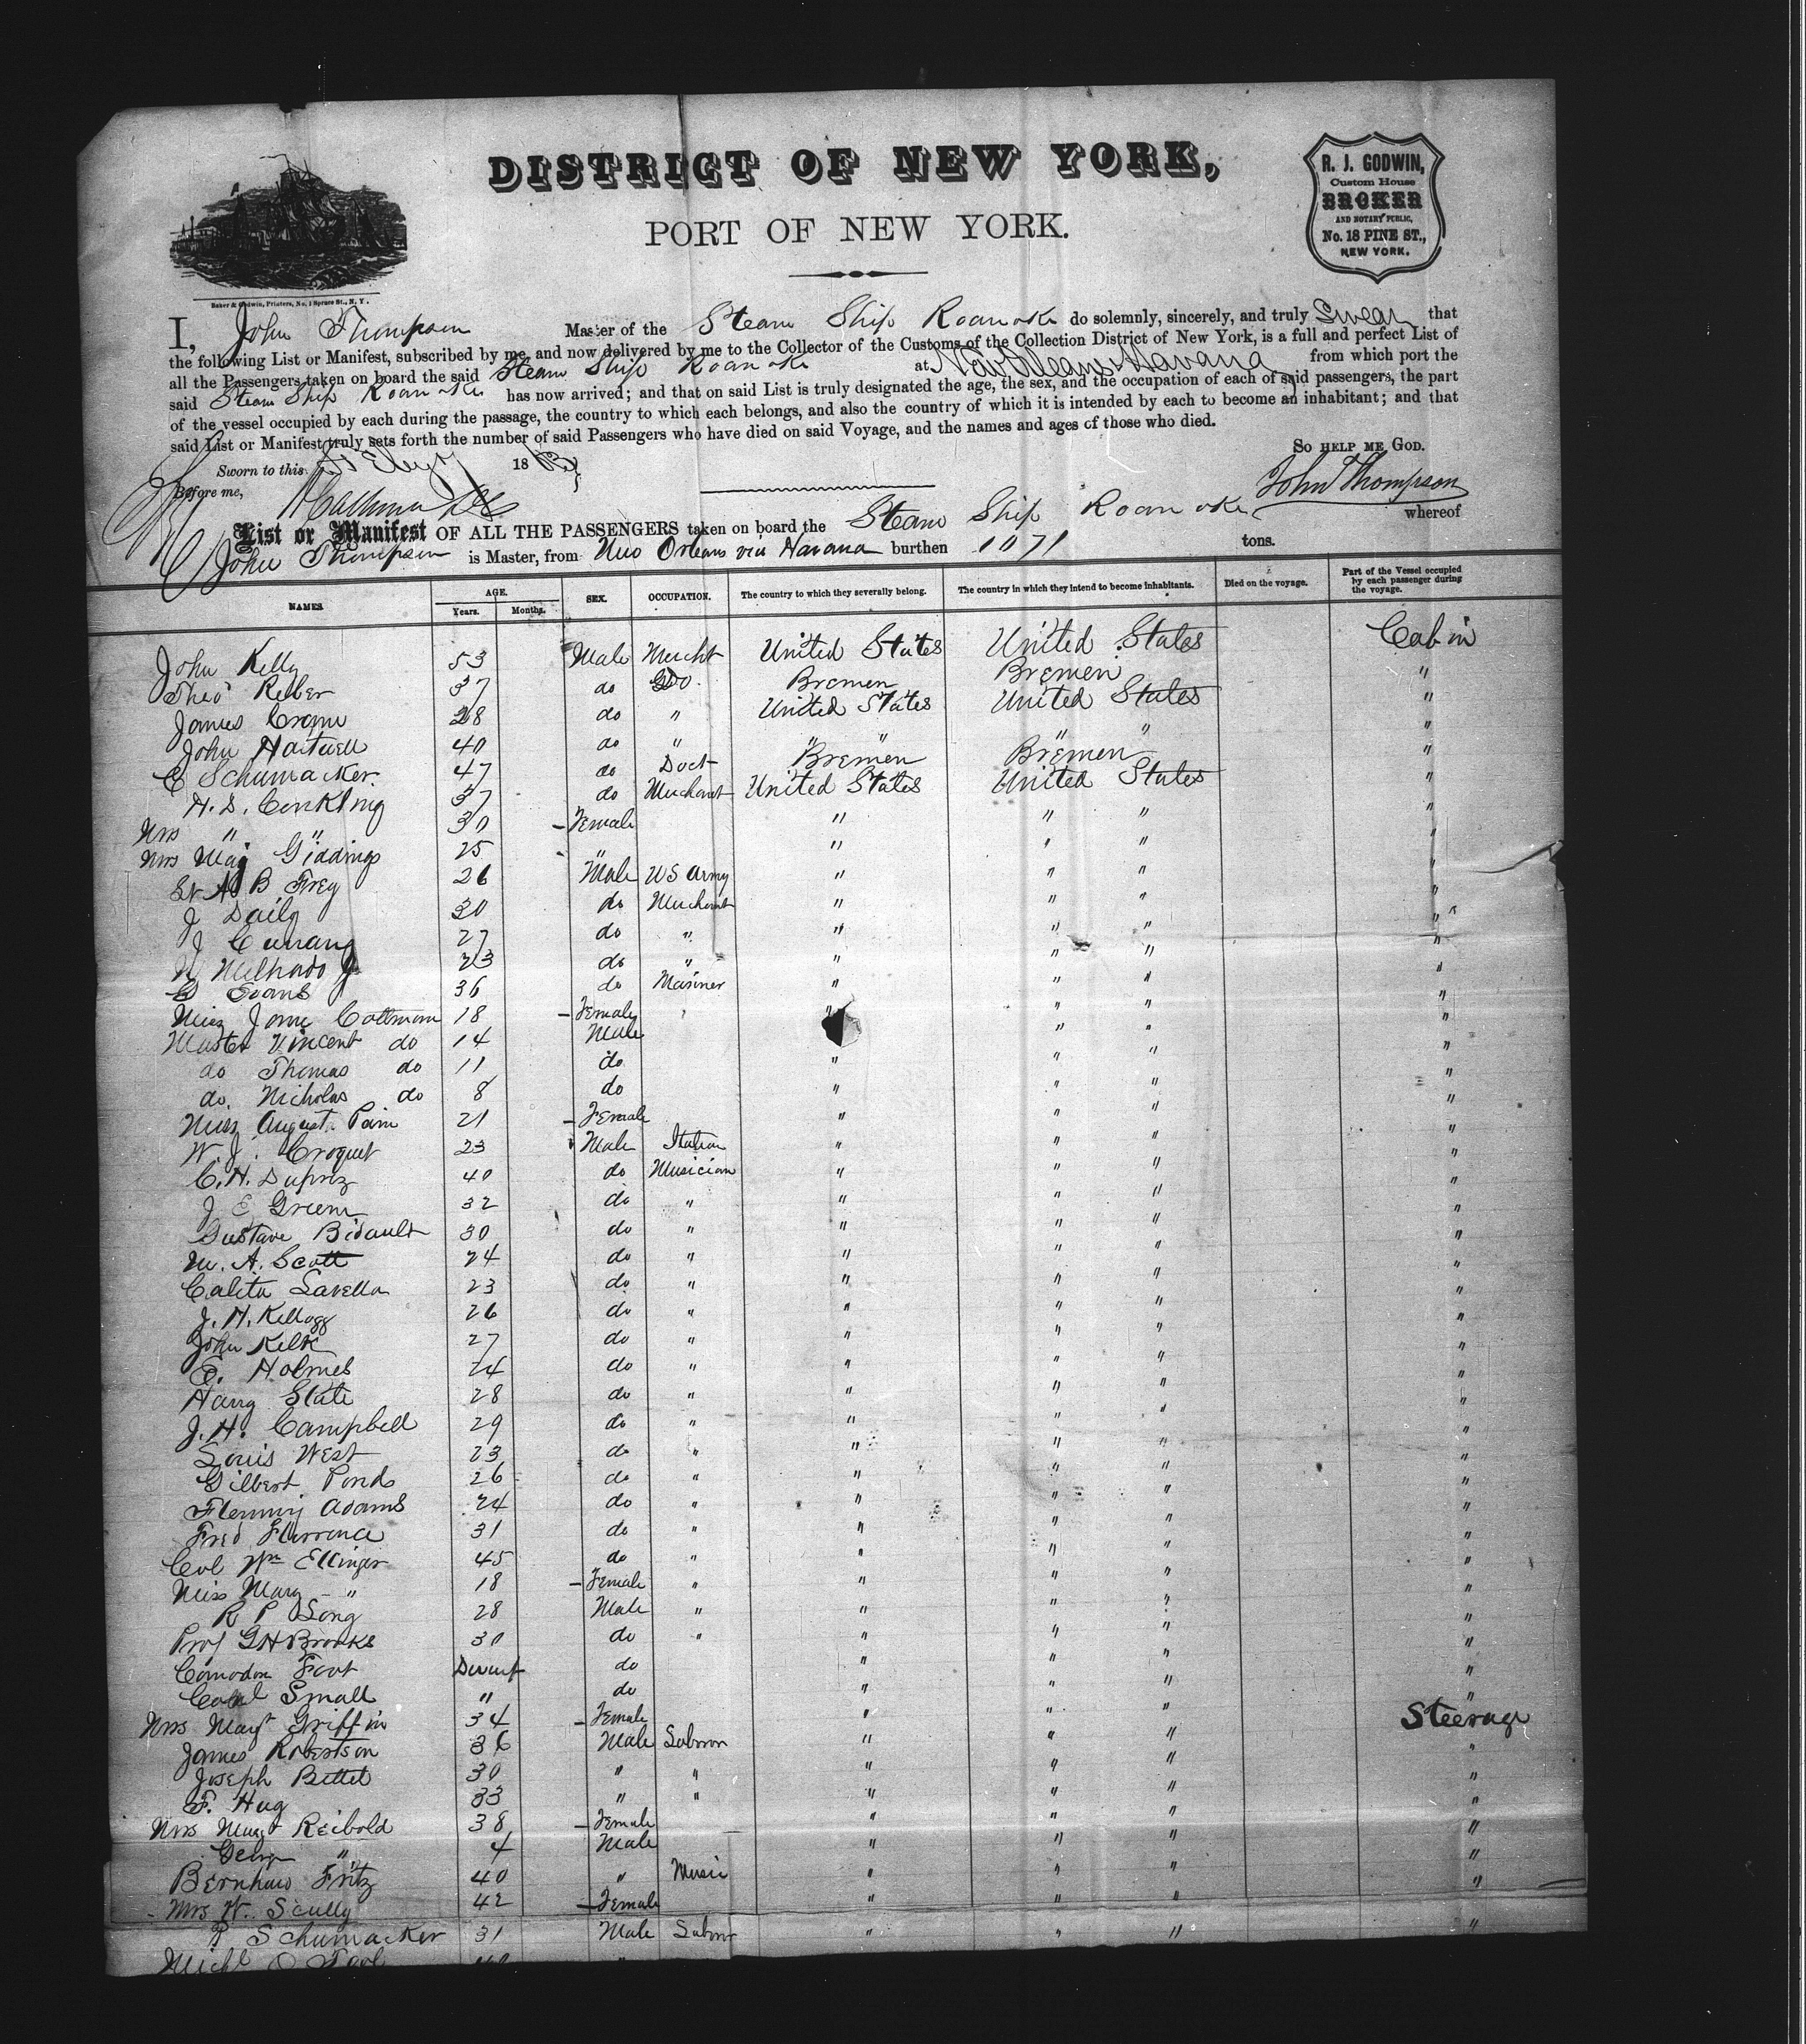 DISTRICT OF NEW YORK,
PORT OF NEW YORK.
R. J. GODWIN,
Custom House
BROKER
AND NOTARY PUBLIC,
No. 18 PINE ST.,
NEW YORK.
Baker & Godwin, Printers, No. 1 Spruce St., N. Y.
I, John Thompson Master of the Steam Ship Roanoke do solemnly, sincerely, and truly Swear that
the following List or Manifest, subscribed by me, and now delivered by me to the Collector of the Customs of the Collection District of New York, is a full and perfect List of
all the Passengers taken on board the said Steam Ship Roanoke at New Orleans & Havana from which port the
said Steam Ship Roanoke has now arrived; and that on said List is truly designated the age, the sex, and the occupation of each of said passengers, the part
of the vessel occupied by each during the passage, the country to which each belongs, and also the country of which it is intended by each to become an inhabitant; and that
said List or Manifest truly sets forth the number of said Passengers who have died on said Voyage, and the names and ages of those who died.
SO HELP ME GOD.
Sworn to this 1863
Before me,
John Thompson
List or Manifest OF ALL THE PASSENGERS taken on board the Steam Ship Roanoke whereof
John Thompson is Master, from New Orleans via Havana burthen 1071 tons.
NAMES AGE. Years. Months. SEX. OCCUPATION. The country to which they severally belong. The country in which they intend to become inhabitants. Died on the voyage. Part of the Vessel occupied by each passenger during the voyage.
John Kelly 53 Male Mercht United States United States Cabin
Theo Keller 37 do Do Bremen Bremen "
James 28 do " United States United States "
John Hartwell 40 do " " " " " "
C Schumacker 47 do Doct Bremen Bremen "
H. S. Conkling 37 do Merchant United States United States "
Mrs " " 30 Female " " " "
Mrs Maj Giddings 25 " " " " "
Lt A B Frey 26 Male US Army " " " "
J Daily 30 do Merchant " " " "
J 27 do " " " " "
Melhado Jr 23 do " " " " "
Evans 36 do Mariner " " " "
Miss Jane Cottman 18 Female " " " "
Master Vincent do 14 Male " " "
do Thomas do 11 do " " " "
do. Nicholas do 8 do " " " "
Miss August. 21 Female " " " "
W. J. Croquet 23 Male Italian " " " "
C. H. Duprez 40 do Musician " " " "
J E Green 32 do " " " " "
Gustave Bidault 30 do " " " " "
M. A. Scott 24 do " " " " "
Calita Lavella 23 do " " " " "
J. H. Kellogg 26 do " " " " "
John Kelk 27 do " " " " "
E. Holmes 24 do " " " " "
Harry Slate 28 do " " " " "
J. H. Campbell 29 do " " " " "
Louis West 23 do " " " " "
Gilbert Pond 26 do " " " " "
Fleming Adams 24 do " " " " "
Fred Florrence 31 do " " " " "
Col Wm Ellinger 45 do " " " " "
Miss Mary " 18 Female " " " " "
R P Long 28 Male " " " " "
Prof G H Brooks 30 do " " " " "
Comodore Foot Dwarf do " " " "
Small " do " " " "
Mrs Mary Griffin 34 Female " " " Steerage
James Robertson 36 Male " " " "
Joseph Bettel 30 " " " " " "
F. Hug 33 " " " " " "
Mrs Reibold 38 Female " " " "
George " 4 Male " " " "
Bernhard Fritz 40 " Music " " " "
Mrs W. Scully 42 Female " " "
Schumacker 31 Male " " " "
Michl O